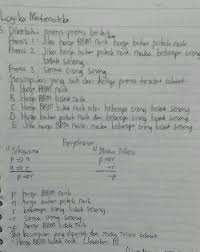 Logika Matematika
5. Diketahui premis-premis berikut
Premis 1 : Jika harga BBM naik, harga bahan pokok naik
Premis 2 : Jika harga bahan pokok naik maka beberapa orang tidak senang
Premis 3 : Semua orang senang
Kesimpulan yang sah dari ketiga premis tersebut adalah
A. Harga BBM naik
B. Harga BBM tidak naik
C. Harga BBM tidak naik atau beberapa orang tidak senang
D. Harga bahan pokok naik dan beberapa orang tidak senang
E. Jika harga BBM naik maka beberapa orang tidak senang
Penyelesaian
1) Silogisme
2) Modus Tollens
p → q
p → r
q → r
~r
p → r
~p
p : harga BBM naik
q : harga bahan pokok naik
r : beberapa orang tidak senang
~r : semua orang senang
~p : harga BBM tidak naik
Jadi kesimpulan yang diperoleh dari modus tollens adalah
"Harga BBM tidak naik" (Jawaban B)